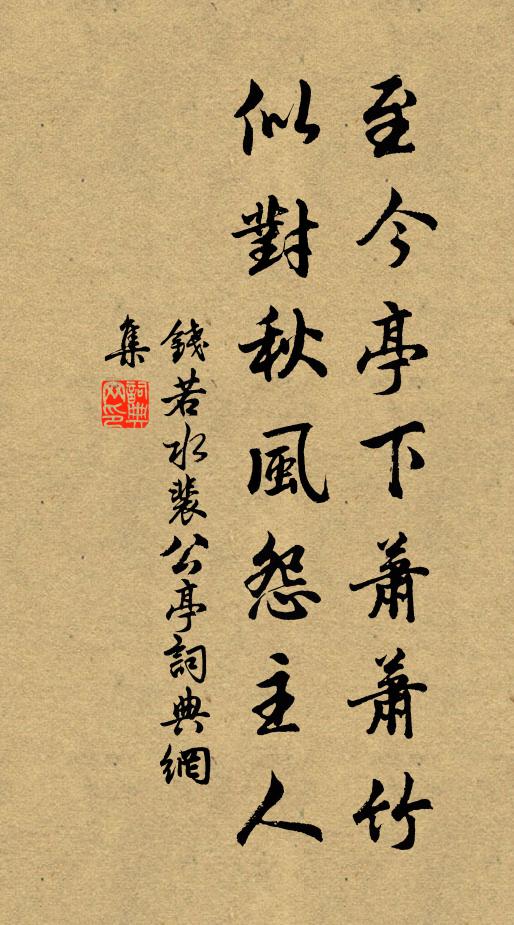 至今亭下蕭蕭竹
似對秋風怨主人
錢若水裴公亭詞典網
集
詞典網印